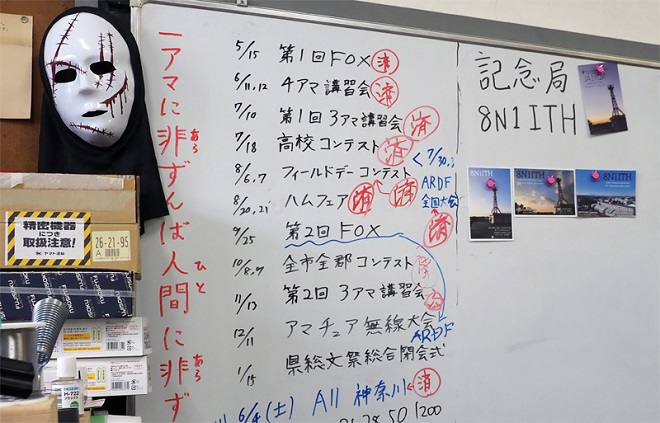 一アマに非ずんば人間に非ず
あら
ひと
あら
5/15 第1回FOX 済
6/11,12 4アマ講習会 済
7/10 第1回3アマ講習会 済
7/18 高校コンテスト 済
8/6,7 フィールドデーコンテスト 済
8/20,21 ハムフェア 済
9/25 第2回FOX
10/8,9 全市全郡コンテスト
11/13 第2回3アマ講習会
12/11 アマチュア無線大会
1/15 県総文祭総合閉会式
6/4(土) All 神奈川 済
21 28 50 1200
7/30,
ARDF
全国大会
済
ARDF
記念局
8N1ITH
8N1ITH
8N1ITH
8N1ITH
精密機器
につき
取扱注意!
ヤマト運輸
26-21-95
A
FUJITSU
M-722